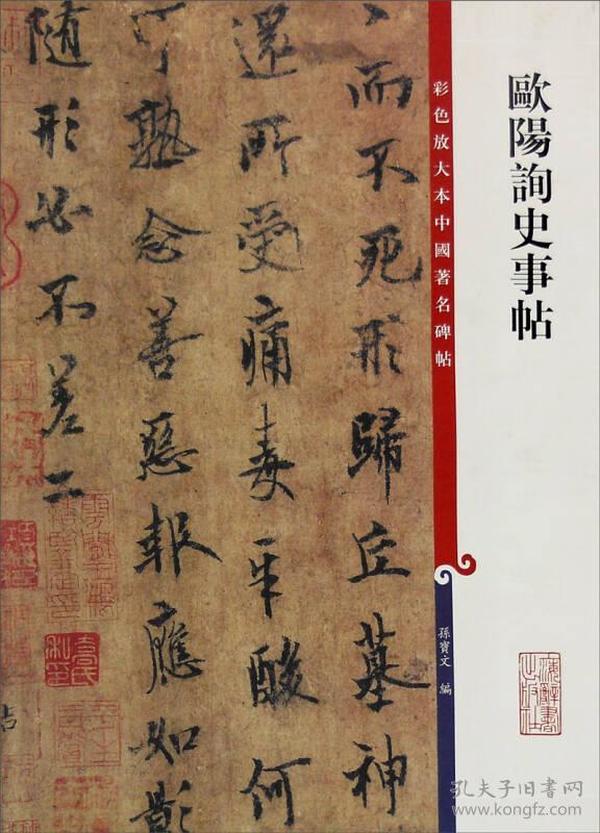 歐陽詢史事帖
彩色放大本中國著名碑帖
孫寶文 編
海辭書出版社
而不死形歸丘墓神
還所受痛毒辛酸何
可熟念善惡報應如影
随形必不差二
孔夫子旧书网
www.kongfz.com